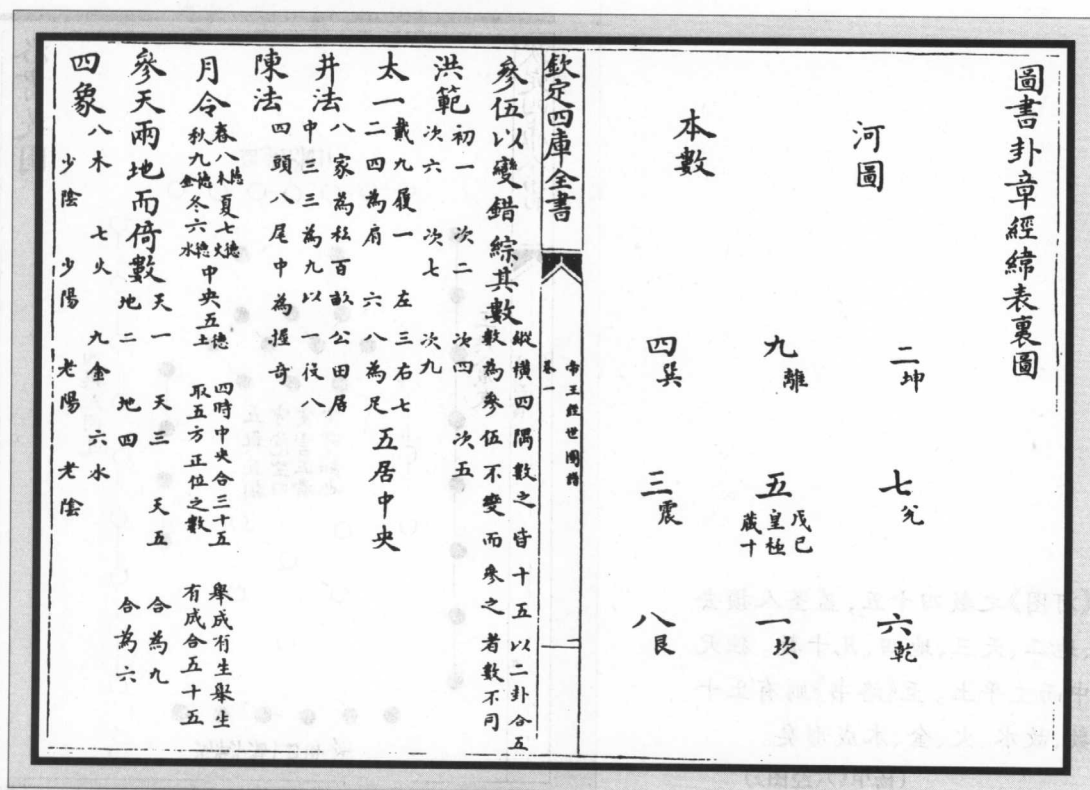 圖書卦章經緯表裏圖
河圖
二坤
七兌
六乾
本數
九離
五
戊己
皇極
藏十
一坎
四巽
三震
八艮
帝王經世圖譜
卷一
二
欽定四庫全書
參伍以變錯綜其數
縱橫四隅數之皆十五以二卦合五
數為參伍不變而參之者數不同
洪範
初一 次二 次四 次五
次六 次七 次九
太一
戴九履一 左三右七
二四為肩 六八為足
五居中央
井法
八家為私百畝公田居
中三三為九以一役八
陳法
四頭八尾中為握奇
月令
春八木德夏七火德
秋九金德冬六水德
中央五土德
四時中央合三十五
取五方正位之數
舉成有生舉生
有成合五十五
參天兩地而倚數
天一 天三 天五 合為九
地二 地四 合為六
四象
八木 七火 九金 六水
少陰 少陽 老陽 老陰